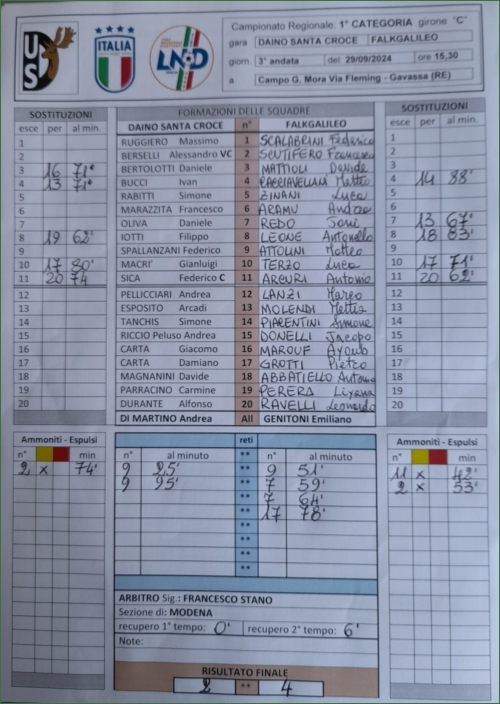 US
ITALIA
LND
Campionato Regionale: 1° CATEGORIA girone "C"
gara DAINO SANTA CROCE FALKGALILEO
giorn. 3° andata del 29/09/2024 ore 15,30
a Campo G. Mora Via Fleming - Gavassa (RE)
SOSTITUZIONI FORMAZIONI DELLE SQUADRE SOSTITUZIONI
esce per al min. DAINO SANTA CROCE n° FALKGALILEO esce per al min.
1 RUGGIERO Massimo 1 SCALABRINI Federico 1
2 BERSELLI Alessandro VC 2 SENTIFERO Francesco 2
3 16 71' BERTOLOTTI Daniele 3 MATTIOLI Davide 3
4 13 71' BUCCI Ivan 4 CACCIAVELLANI Matteo 4 14 88'
5 RABITTI Simone 5 ZINANI Luca 5
6 MARAZZITA Francesco 6 ARAMU Andrea 6
7 OLIVA Daniele 7 REDO Joni 7 13 67'
8 19 62' IOTTI Filippo 8 LEONE Antonello 8 18 83'
9 SPALLANZANI Federico 9 ATTOLINI Matteo 9
10 17 80' MACRI' Gianluigi 10 TERZO Luca 10 17 71'
11 20 74 SICA Federico C 11 ARCURI Antonio 11 20 62'
12 PELLICCIARI Andrea 12 LANZI Marco 12
13 ESPOSITO Arcadi 13 MOLENDI Mattia 13
14 TANCHIS Simone 14 PIARENTINI Simone 14
15 RICCIO Peluso Andrea 15 DONELLI Jacopo 15
16 CARTA Giacomo 16 MAROUF Ayoub 16
17 CARTA Damiano 17 GROTTI Pietro 17
18 MAGNANINI Davide 18 ABBATIELLO Antonio 18
19 PARRACINO Carmine 19 PERERA 19
20 DURANTE Alfonso 20 RAVELLI Leonardo 20
DI MARTINO Andrea All GENITONI Emiliano
Ammoniti - Espulsi reti Ammoniti - Espulsi
n° min n° al minuto ** n° al minuto n° min
2 x 74' 9 25' ** 9 51' 11 x 42'
9 95' ** 7 59' 2 x 53'
** 7 64'
** 17 78'
**
**
**
**
ARBITRO Sig.: FRANCESCO STANO
Sezione di: MODENA
recupero 1° tempo: 0' recupero 2° tempo: 6'
Note:
RISULTATO FINALE
2 ** 4